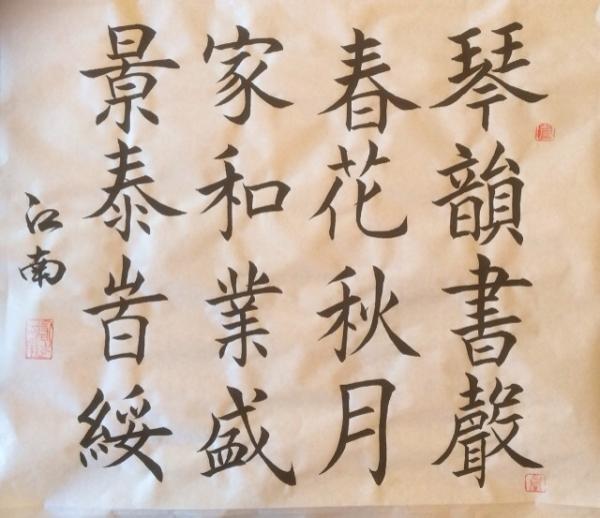 琴韻書聲
春花秋月
家和業盛
景泰旹綏
江南